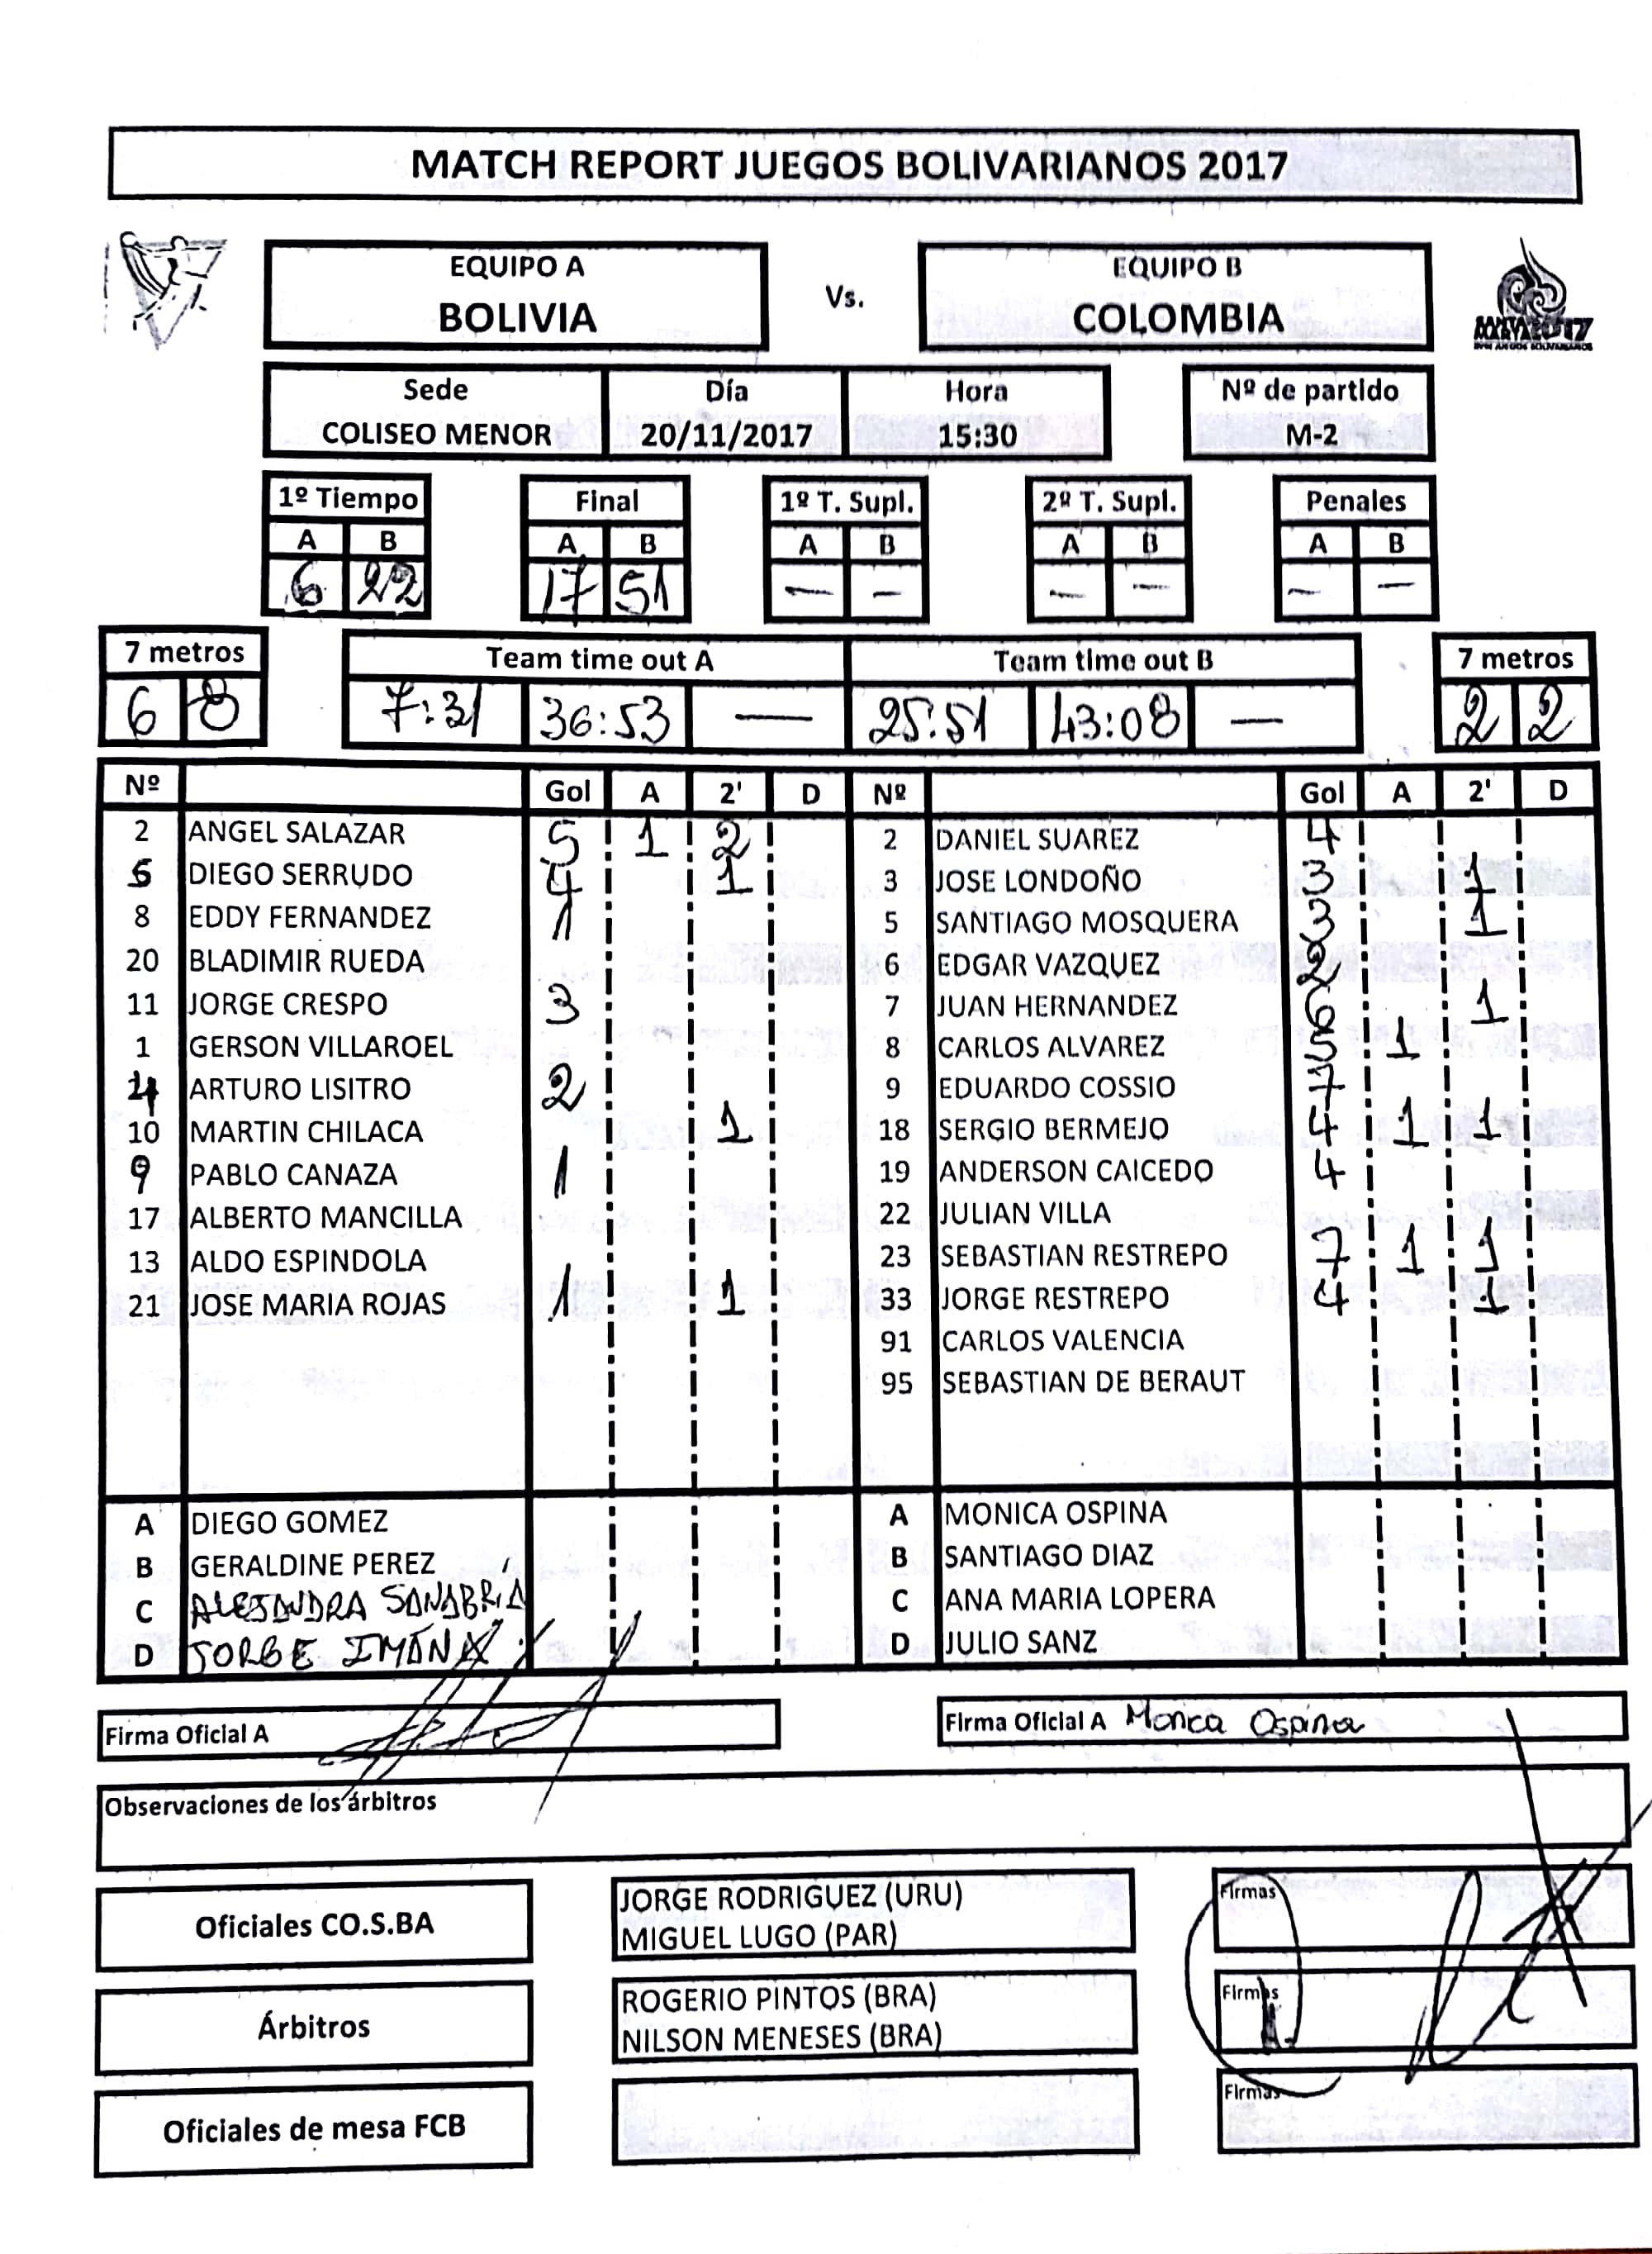 MATCH REPORT JUEGOS BOLIVARIANOS 2017
EQUIPO A
BOLIVIA
Vs.
EQUIPO B
COLOMBIA
Sede Día Hora Nº de partido
COLISEO MENOR 20/11/2017 15:30 M-2
1º Tiempo Final 1º T. Supl. 2º T. Supl. Penales
A B A B A B A B A B
6 22 17 51 — — — — — —
7 metros Team time out A Team time out B 7 metros
6 8 7:31 36:53 — 25:51 43:08 — 2 2
Nº Gol A 2' D Nº Gol A 2' D
2 ANGEL SALAZAR 5 1 2 2 DANIEL SUAREZ 4
5 DIEGO SERRUDO 4 1 3 JOSE LONDOÑO 3 1
8 EDDY FERNANDEZ 1 5 SANTIAGO MOSQUERA 3 1
20 BLADIMIR RUEDA 6 EDGAR VAZQUEZ 2
11 JORGE CRESPO 3 7 JUAN HERNANDEZ 6 1
1 GERSON VILLAROEL 8 CARLOS ALVAREZ 5 1
4 ARTURO LISITRO 2 9 EDUARDO COSSIO 7
10 MARTIN CHILACA 1 18 SERGIO BERMEJO 4 1 1
9 PABLO CANAZA 1 19 ANDERSON CAICEDO 4
17 ALBERTO MANCILLA 22 JULIAN VILLA
13 ALDO ESPINDOLA 23 SEBASTIAN RESTREPO 7 1 1
21 JOSE MARIA ROJAS 1 1 33 JORGE RESTREPO 4 1
91 CARLOS VALENCIA
95 SEBASTIAN DE BERAUT
A DIEGO GOMEZ A MONICA OSPINA
B GERALDINE PEREZ B SANTIAGO DIAZ
C ALEJANDRA SANABRIA C ANA MARIA LOPERA
D JORGE IMANA D JULIO SANZ
Firma Oficial A Firma Oficial A Monica Ospina
Observaciones de los árbitros
Oficiales CO.S.BA
JORGE RODRIGUEZ (URU)
MIGUEL LUGO (PAR)
Firmas
Árbitros
ROGERIO PINTOS (BRA)
NILSON MENESES (BRA)
Firmas
Oficiales de mesa FCB
Firmas